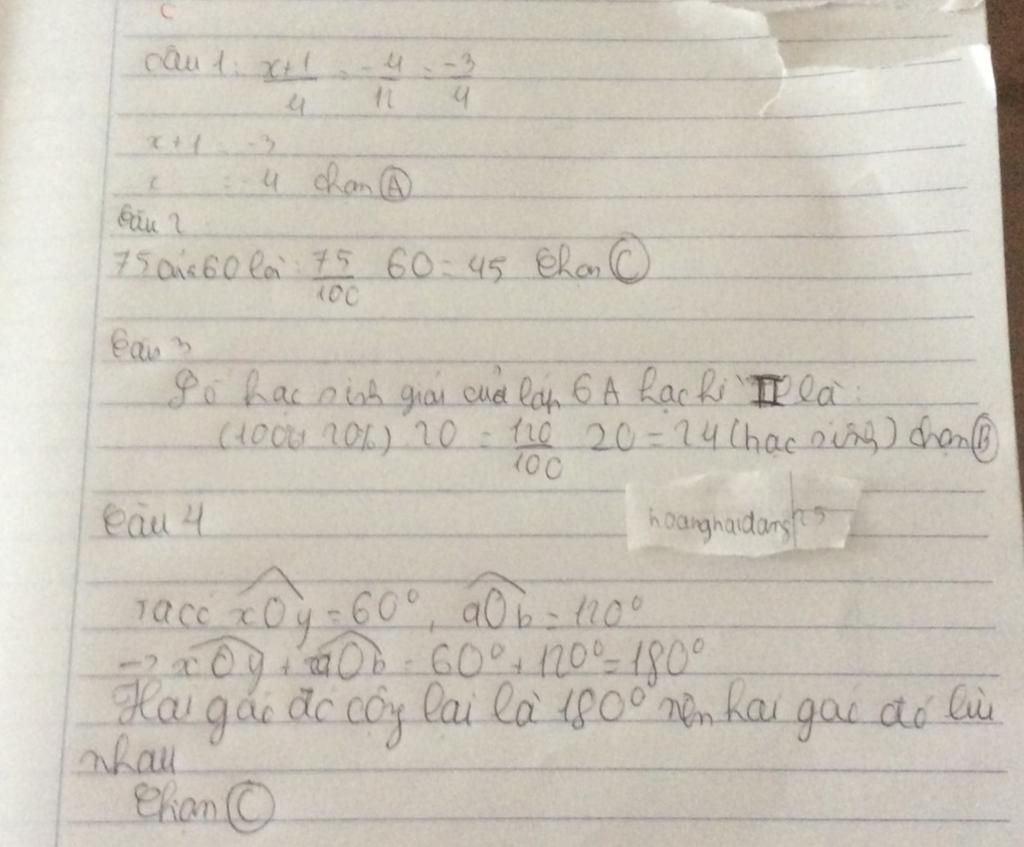 Câu 1: x+1/4 = -4/12 = -3/4
x+1 = -3
x = -4 chọn A
Câu 2
75% của 60 là: 75/100 . 60 = 45 Chọn C
Câu 3
Số học sinh giỏi của lớp 6A học kì II là:
(100% + 20%) . 20 = 120/100 . 20 = 24 (học sinh) chọn B
Câu 4
hoanghaidang
Ta có xOy = 60°, aOb = 120°
-> xOy + aOb = 60° + 120° = 180°
Hai góc đó cộng lại là 180° nên hai góc đó bù
nhau
Chọn C